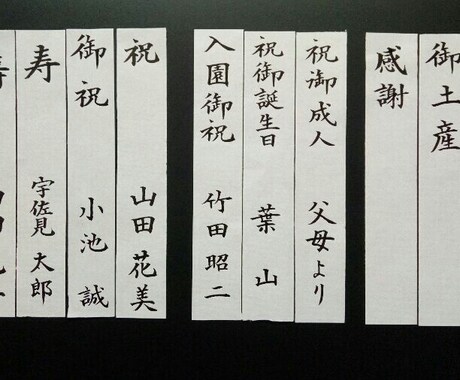 御土産
感謝
祝御成人 父母より
祝御誕生日 葉山
入園御祝 竹田昭二
祝 山田花美
御祝 小池誠
寿 宇佐見太郎